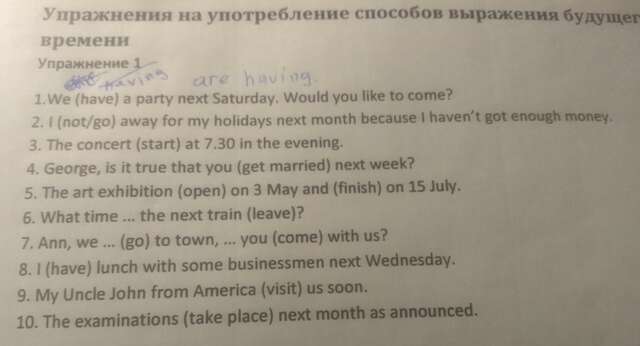 Упражнения на употребление способов выражения будущег
времени
Упражнение 1
having are having.
1.We (have) a party next Saturday. Would you like to come?
2. I (not/go) away for my holidays next month because I haven't got enough money.
3. The concert (start) at 7.30 in the evening.
4. George, is it true that you (get married) next week?
5. The art exhibition (open) on 3 May and (finish) on 15 July.
6. What time ... the next train (leave)?
7. Ann, we ... (go) to town, ... you (come) with us?
8. I (have) lunch with some businessmen next Wednesday.
9. My Uncle John from America (visit) us soon.
10. The examinations (take place) next month as announced.